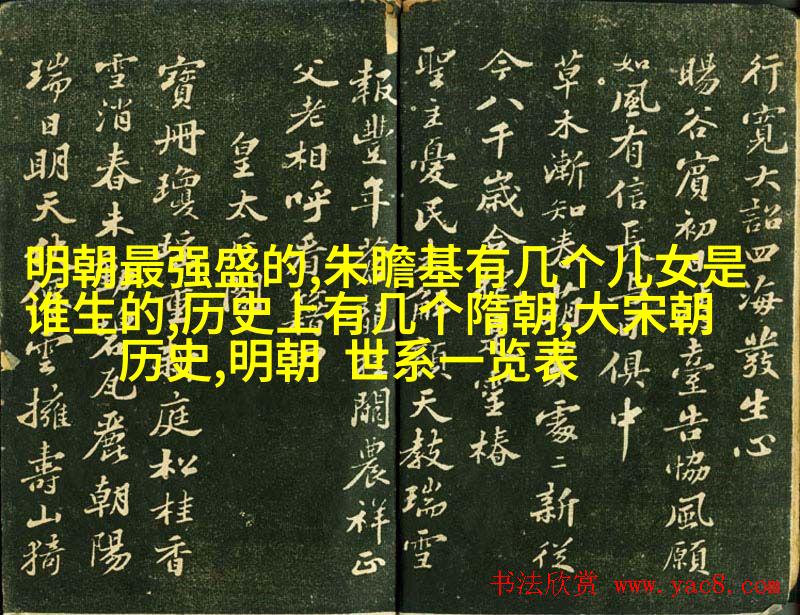 行寬大詔四海發生心
暘谷賓初日 臺告協風願
如風有信長 俱中
草木漸知春 處〻新從
今八千歲合 靈椿
聖主憂民 解顏天教瑞雪
報豐年 關農祥正
父老相呼看
皇太 閣
寶冊瓊 重 庭松桂香
雪消春未 瓦麗朝陽
瑞日明天 雲擁壽山猗
明朝最强盛的,朱瞻基有几个儿女是
谁生的,历史上有几个隋朝,大宋朝
历史,明朝 世系一览表
书法欣赏 www.yac8.com